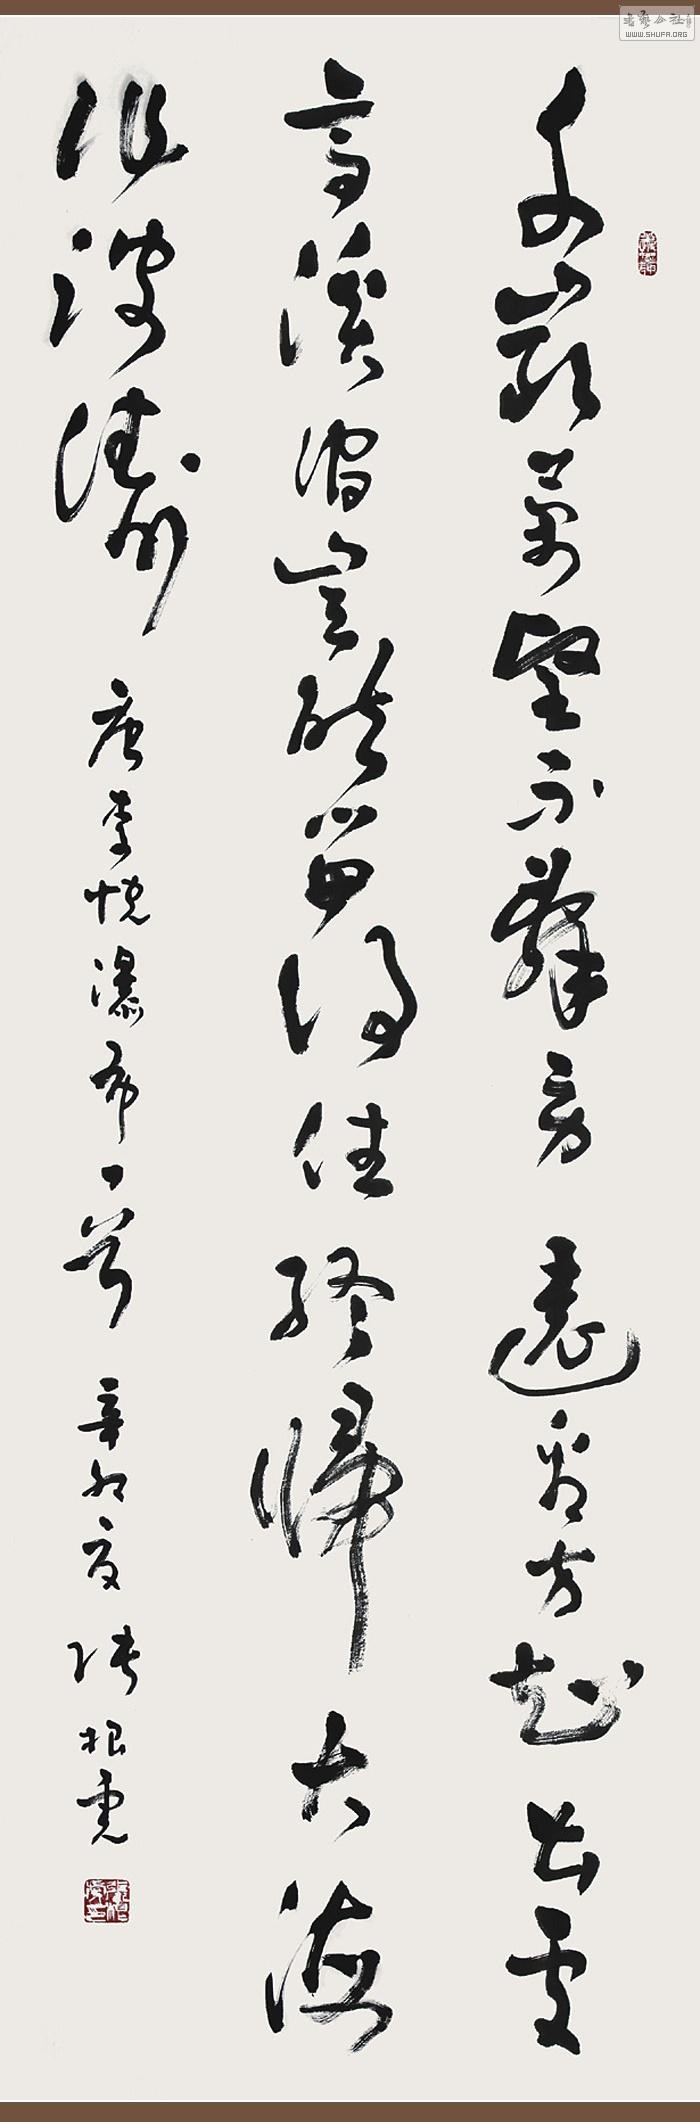 千巖萬壑不辭勞遠看方知出處
高溪澗豈能留得住終歸大海
作波濤 唐李忱瀑布一首 辛卯夏 張根
書藝公社
WWW.SHUFA.ORG